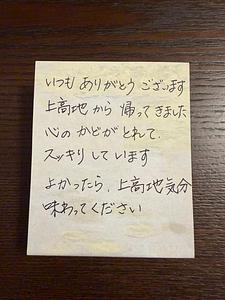 いつも ありがとう ございます
上高地 から 帰ってきました
心の かどが とれて、
スッキリ しています
よかったら、上高地気分
味わってください